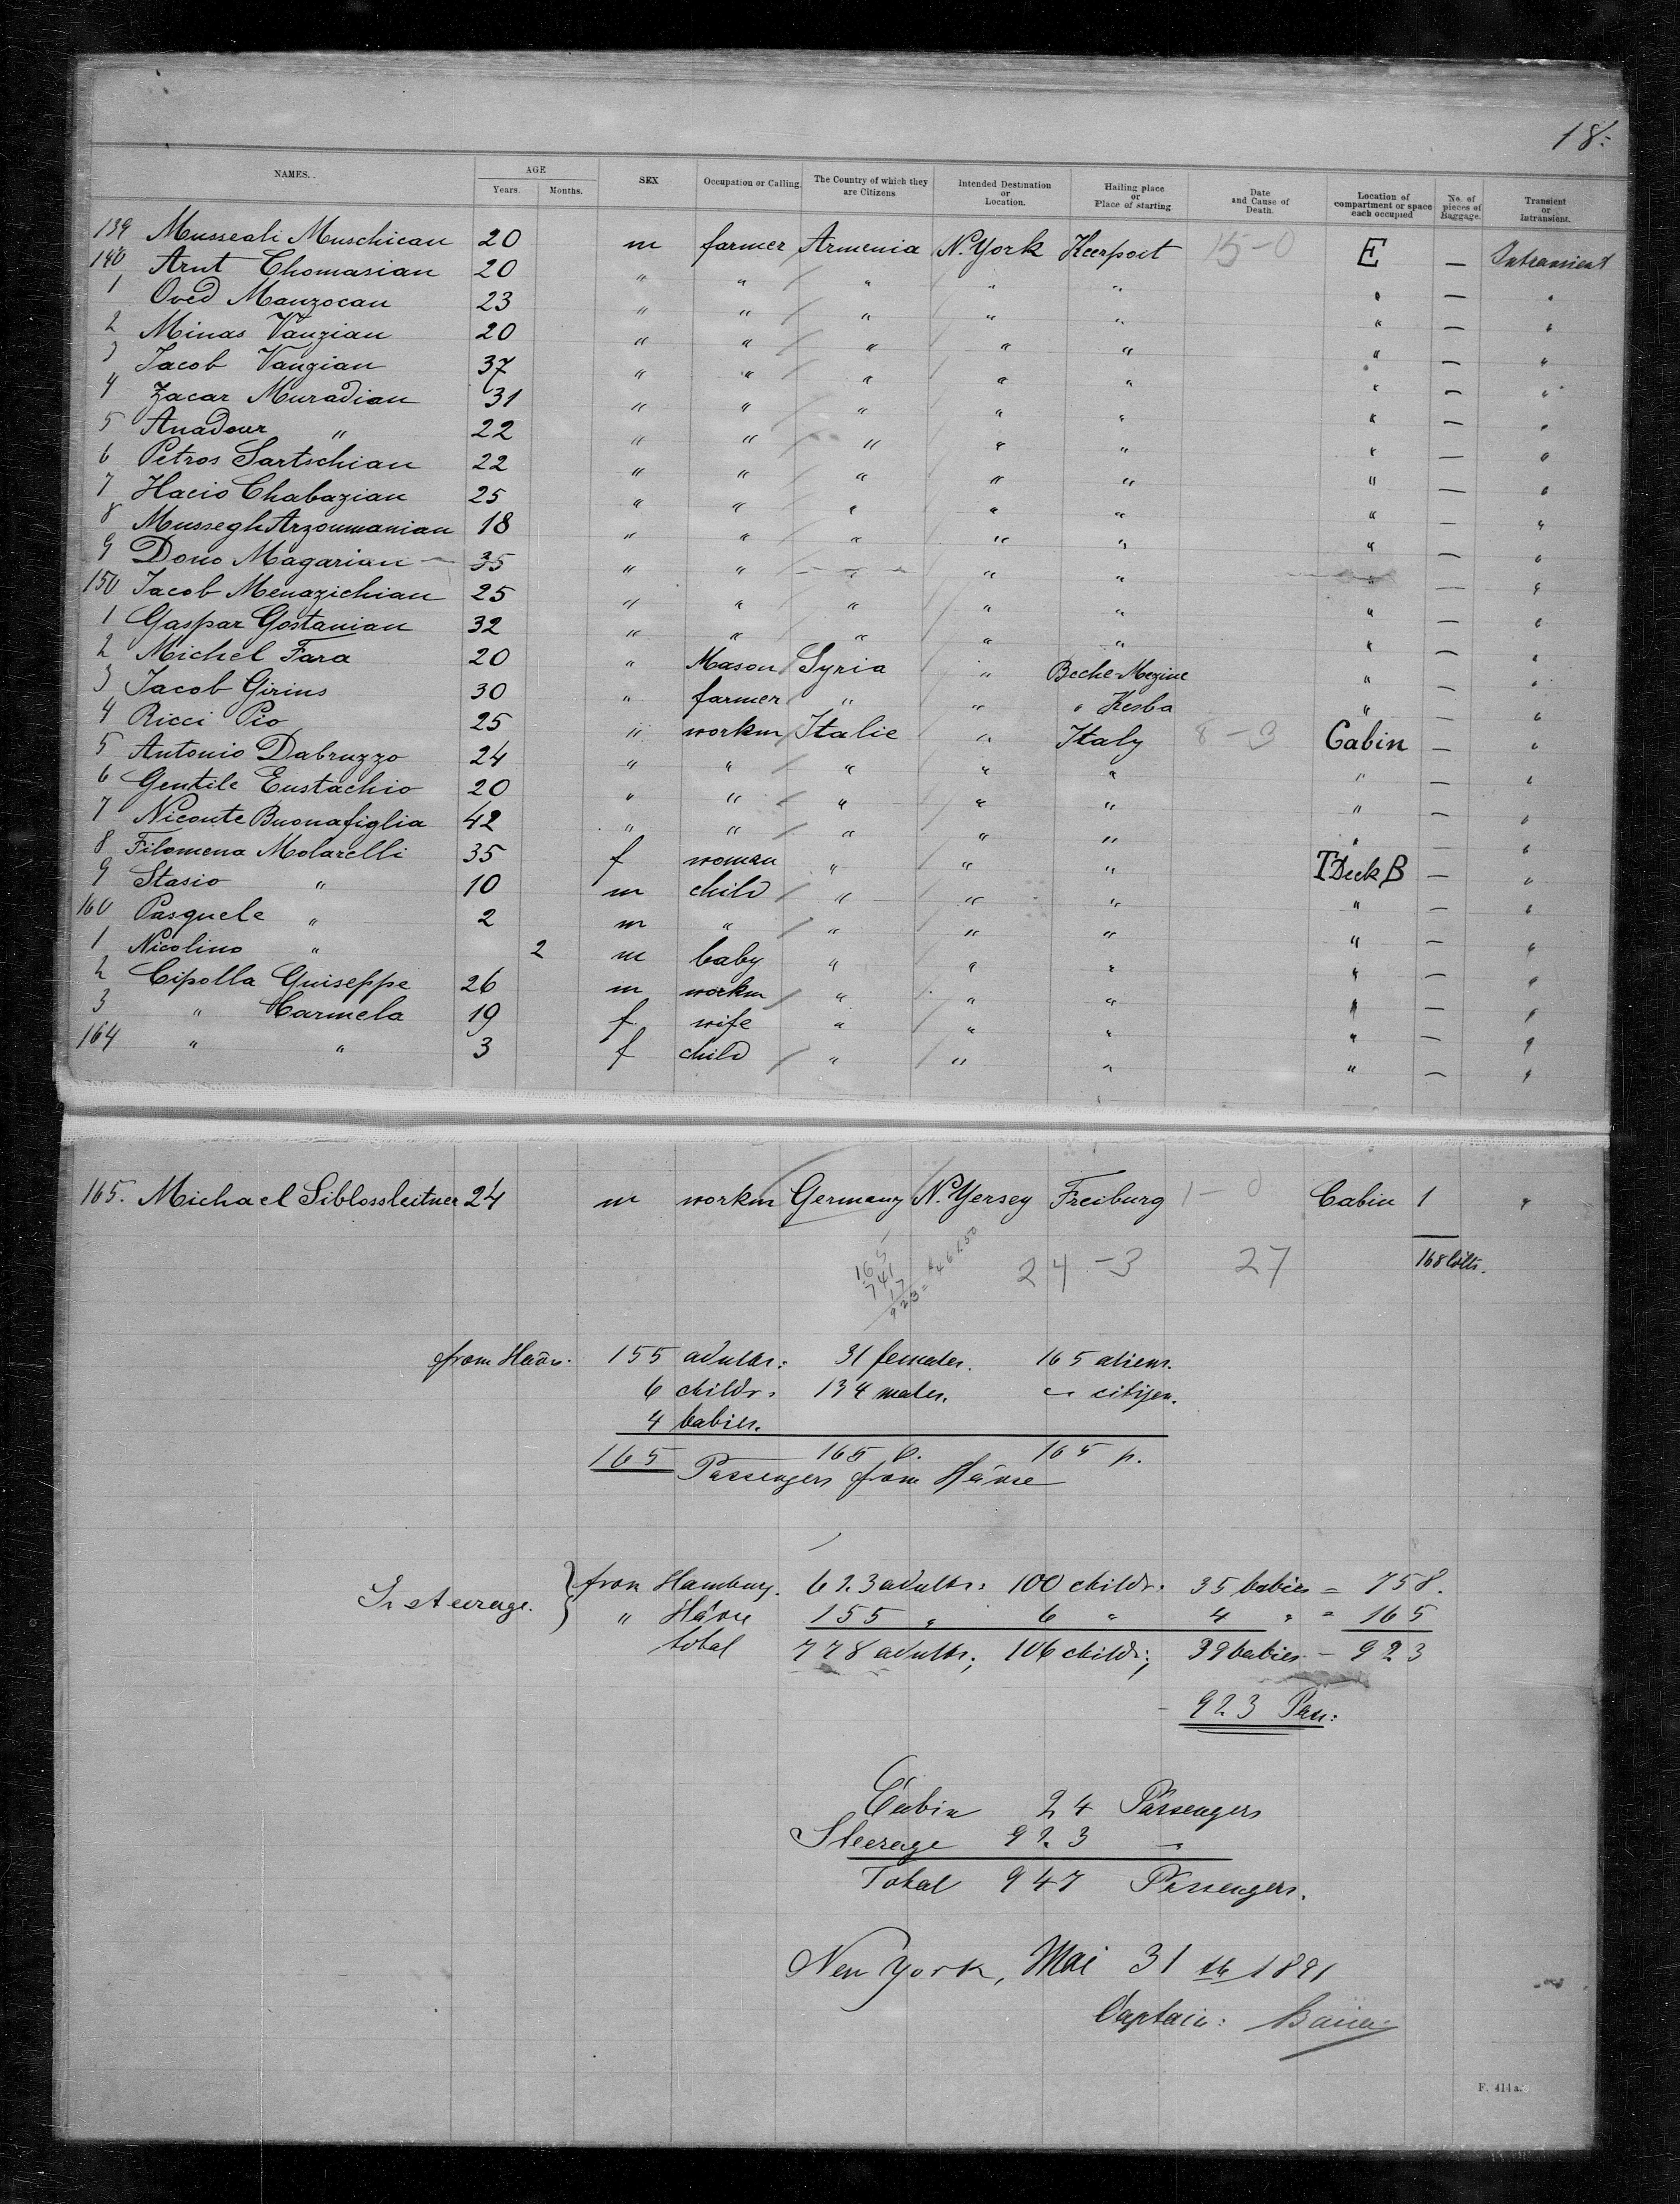 18.
NAMES. AGE SEX Occupation or Calling. The Country of which they are Citizens Intended Destination or Location. Hailing place or Place of starting Date and Cause of Death. Location of compartment or space each occupied No. of pieces of Baggage. Transient or Intransient.
Years. Months.
139 Musseali Muschican 20 m farmer Armenia N. York Keerpoet 15-0 E — Intransient
140 Arut Chomasian 20 " " " " " " — "
1 Oved Manzocan 23 " " " " " " — "
2 Minas Vanzian 20 " " " " " " — "
3 Jacob Vangian 37 " " " " " " — "
4 Zacar Muradian 31 " " " " " " — "
5 Anadour " 22 " " " " " " — "
6 Petros Sartschian 22 " " " " " " — "
7 Hacio Chabazian 25 " " " " " " — "
8 Mussegh Arzoumanian 18 " " " " " " — "
9 Dono Magarian 35 " " " " " " — "
150 Jacob Menazichian 25 " " " " " " — "
1 Gaspar Gostanian 32 " " " " " " — "
2 Michel Fara 20 " Mason Syria " Beche-Mezine " — "
3 Jacob Girius 30 " farmer " " " Kesba " — "
4 Ricci Pio 25 " workm Italie " Italy 8-3 Cabin — "
5 Antonio Dabruzzo 24 " " " " " " — "
6 Gentile Eustachio 20 " " " " " " — "
7 Niconte Buonafiglia 42 " " " " " " — "
8 Filomena Molarelli 35 f woman " " " T Deck B — "
9 Stasio " 10 m child " " " " — "
160 Pasquele " 2 m " " " " " — "
1 Nicolino " 2 m baby " " " " — "
2 Cipolla Guiseppe 26 m workm " " " " — "
3 " Carmela 19 f wife " " " " — "
164 " " 3 f child " " " " — "
165. Michael Siblossleitner 24 m workm Germany N. Yersey Freiburg 1-0 Cabin 1 "
165
741
17
923 = $461.50
24-3 27 168
from Havre. 155 adults: 31 females. 165 aliens.
6 childr: 134 males. — citizen.
4 babies.
165 165 p. 165 p.
Passengers from Hâvre
In steerage. } from Hamburg. 623 adults: 100 childr: 35 babies = 758.
" Hâvre 155 " 6 " 4 " = 165
total 778 adults; 106 childr:, 39 babies — 923
923 Pass:
Cabin 24 Passengers
Steerage 923 —
Total 947 Passengers.
New York, Mai 31 th 1891
Captain:
F. 414 a.